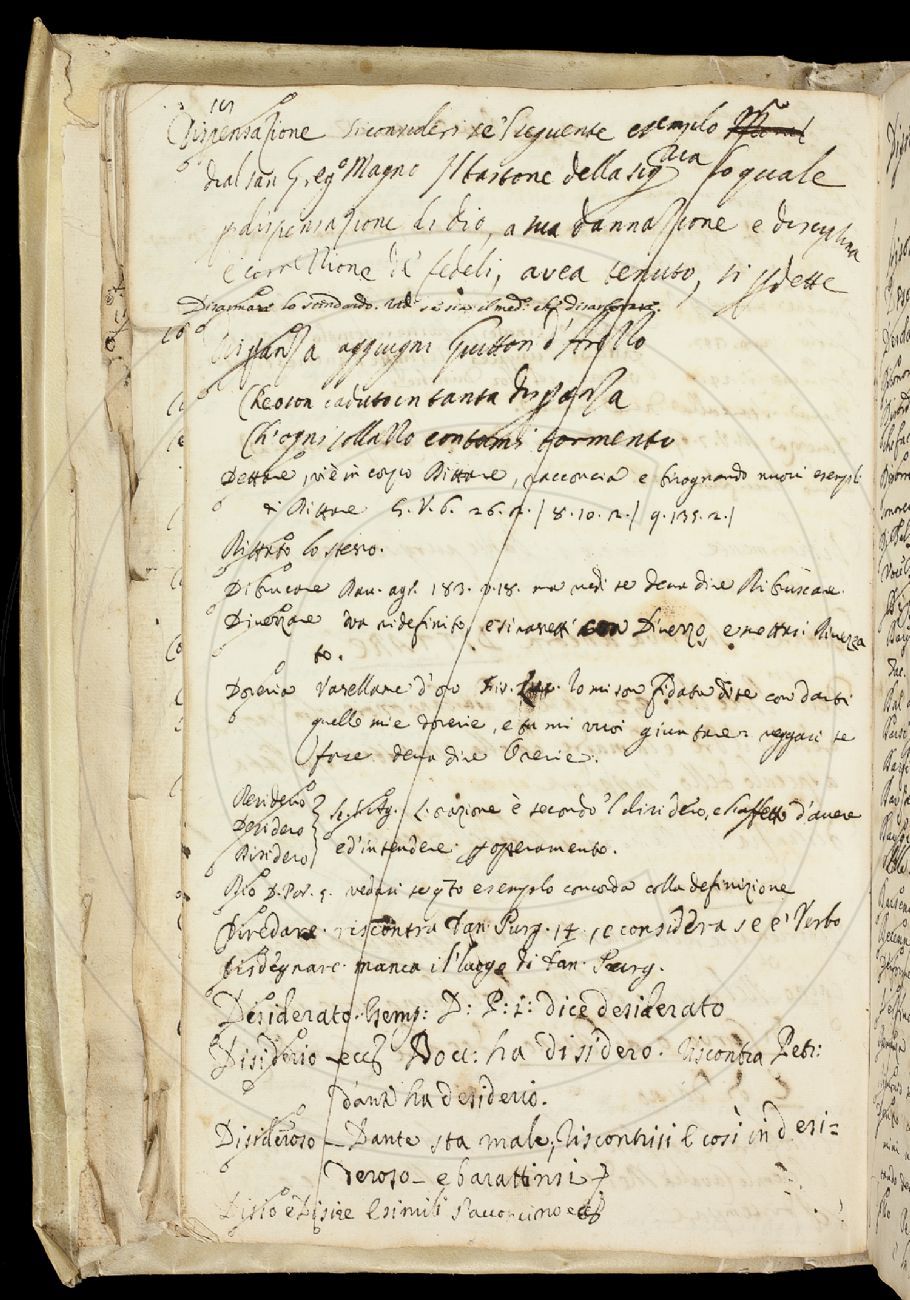 Dispensazione si consideri se'l seguente esemplo
dial san Greg.o Magno Il bastone della sig.ria lo quale
p dispensazione di dio, a sua dannazione e disciplina
e correzione de' fedeli, avea tenuto, si pdette
Disparare lo secondo.
Disparza aggiugni Guitton d'Arezzo
Che oson caduto in tanta disparza
Ch'ogni collazzo contami tormento
Dettare, vide in corpo Dittare, racconcia e bisognando nuovi esempli
di Dittare G. V. 6. 26. n. / 8. 10. 2. / 9. 135. 2. /
Dittato lo stesso.
Dibucare Dav. agr. 183. v. 18. ma vedi se deva dire Ribuscare
Diverzare va ridefinito, e si rassetti con Diverzo, e mettasi Diverza
to.
Doreria Vasellame d'oro Io mi son fidata di te con darti
quelle mie dorerie, e tu mi vuoi giuntare? veggasi se
forse deva dire Orerie.
Desiderio
Desidero L'orazione è secondo 'l disidéro, e l'affetto d'avere
Disidero ed'intendere operamento.
Dio D. Par. 5. vedasi se q.to esemplo concorda colla definizione
Diredare riscontra Dan. Purg. 14, e considera se è Verbo
Disdegnare manca il luogo di Dan. Purg.
Desiderato. Esemp: D: P: 1: dice desiderato
Disiderio ecc Bocc: ha disidero. riscontra Petr:
Dant: ha desiderio.
Disideroso – Dante sta male, riscontrisi e così in desi=
deroso – e barattinsi
Disio e Disire e simili s'acconcino ecc